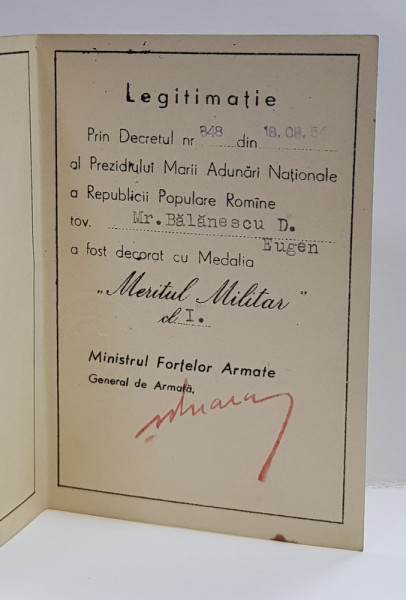 Legitimație
Prin Decretul nr 348 din 18.08.54
al Prezidiului Marii Adunări Naționale
a Republicii Populare Romîne
tov. Mr. Bălănescu D.
Eugen
a fost decorat cu Medalia
„Meritul Militar"
cl. I.
Ministrul Forțelor Armate
General de Armată,